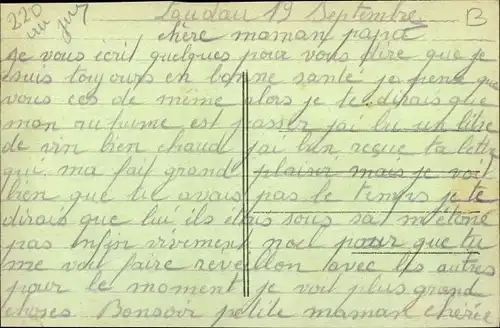 220
B
Landau 19 Septembre
chère maman papa
je vous ecrit quelques pour vous dire que je
suis toujours en bonne santé je pense que
vous ces de même alors je te dirais que
mon ruhume est passer j'ai bu un litre
de vin bien chaud j'ai bien reçue ta lettre
qui ma fait grand plaisir mais je voit
bien que tu avais pas le temps je te
dirais que lui ils étais sous sa m'étone
pas Enfin vivement noel pour que tu
me vou faire reveillon avec les autres
pour le moment je vou plus grand
choses Bonsoir petite maman chérie